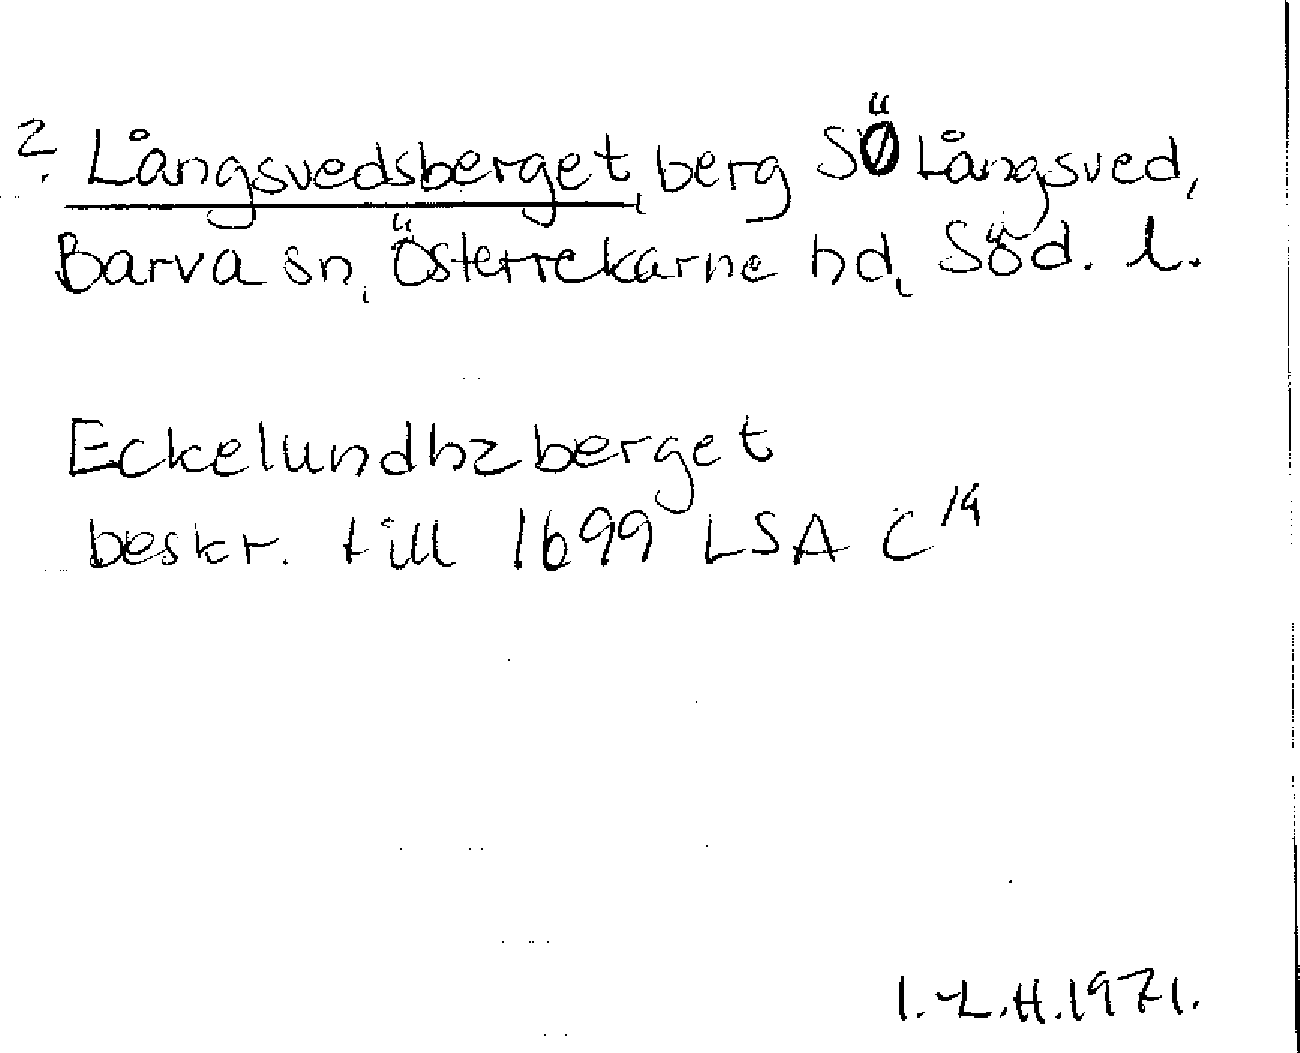 ? Långsvedsberget, berg SÖ Långsved,
Barva sn, Österrekarne hd, Söd. l.
Eckelundhzberget
beskr. till 1699 LSA C 14
I.-L.H.1971.